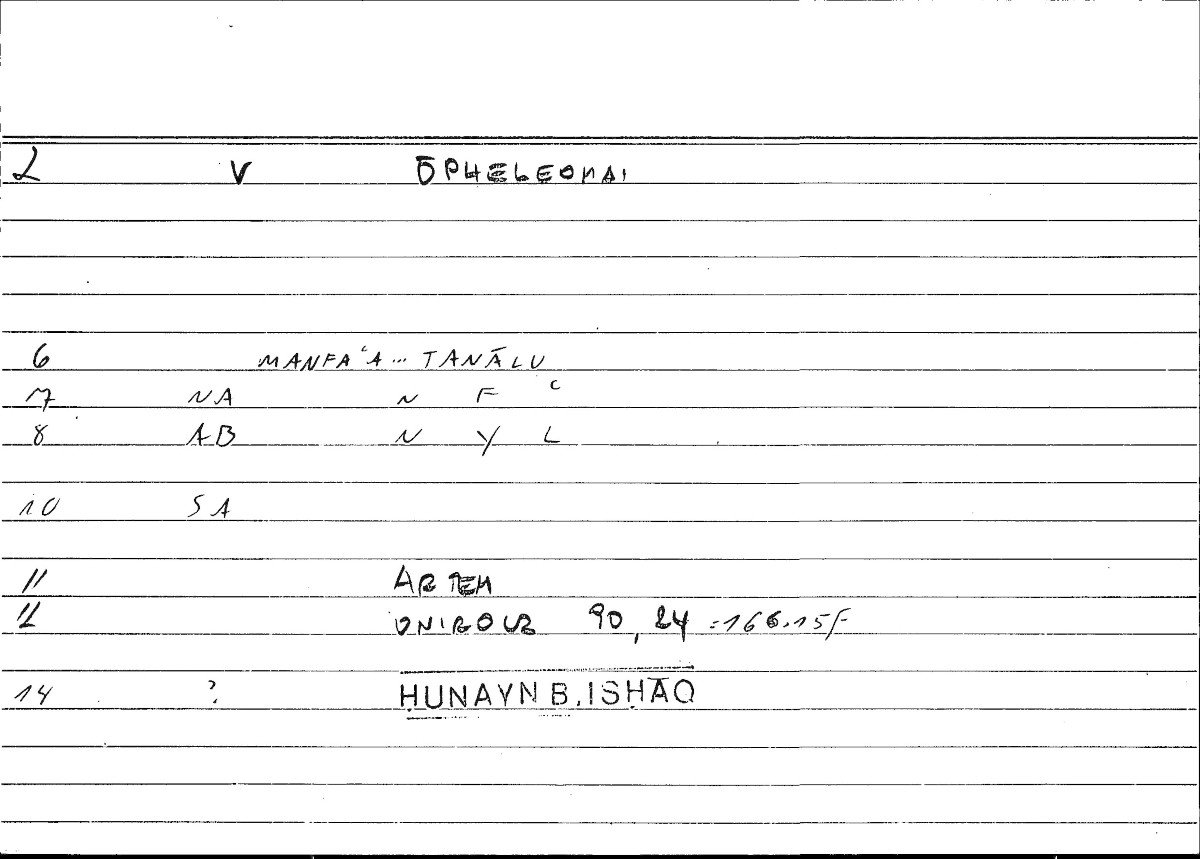 2 V ŌPHELEOMAI
6 MANFAʿA ... TANĀLU
7 NA N F ʿ
8 AB N Y L
10 SA
11 ARTEM
12 ONIROCR 90, 24 = 166.15f
14 ? ḤUNAYN B. ISḤĀQ